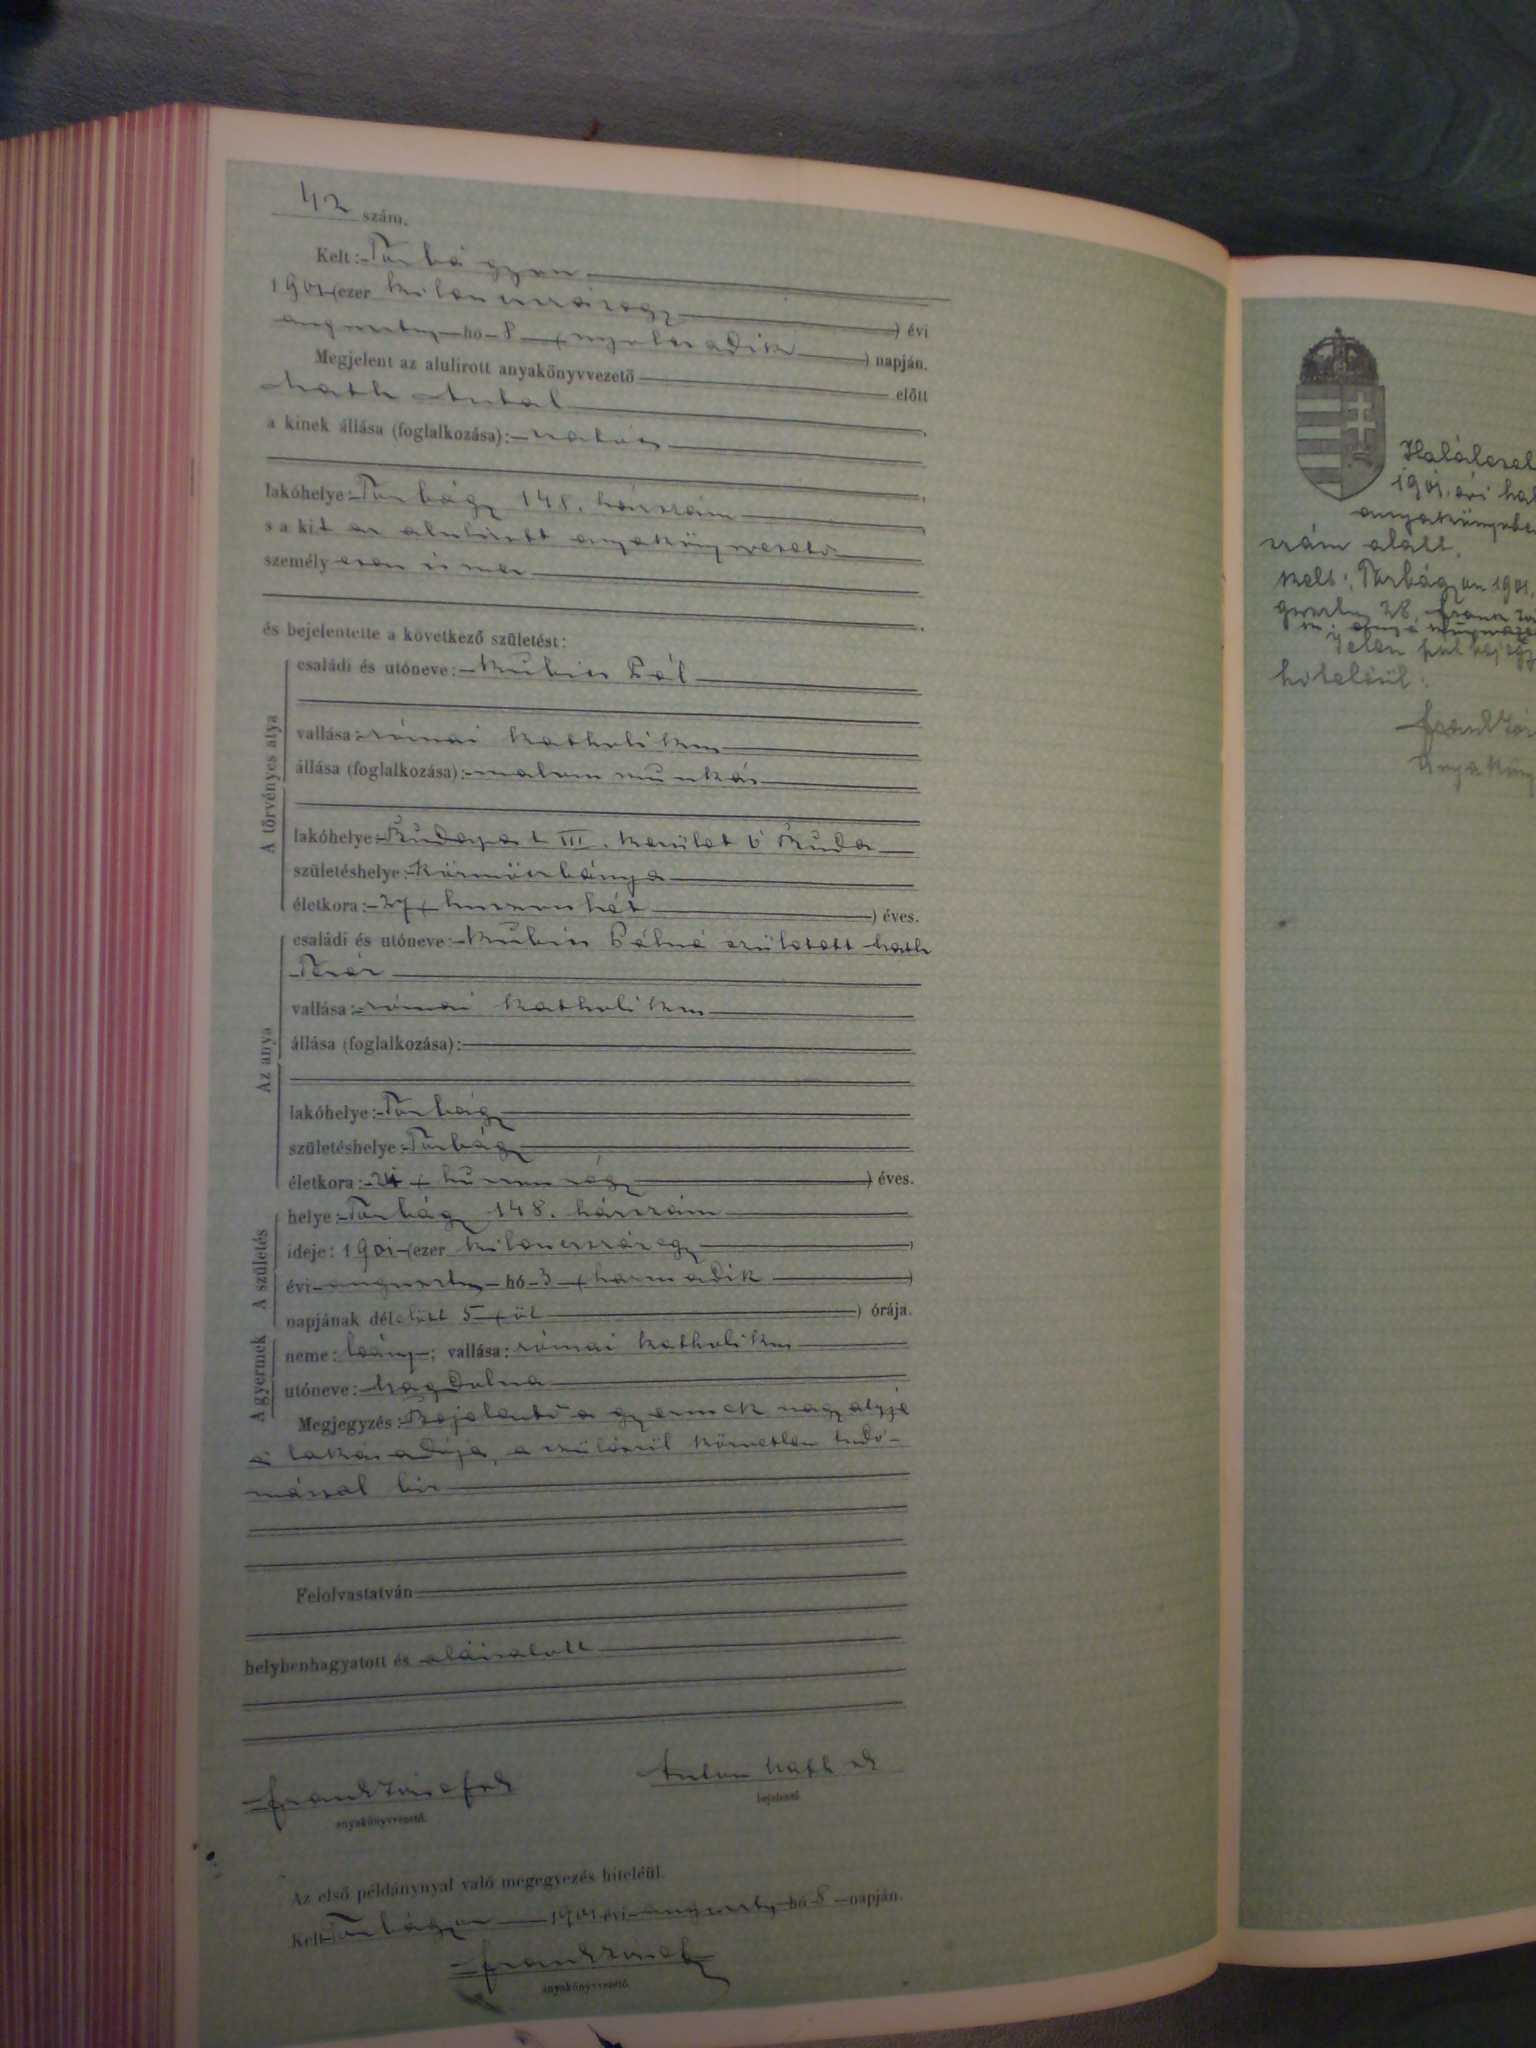 42 szám.
Kelt: Torbágyon
1901 (ezer kilenczszázegy) évi
augusztus hó 8 (nyolczadik) napján.
Megjelent az alulirott anyakönyvvezető előtt
Antal
a kinek állása (foglalkozása):
lakóhelye: Torbágy 148. házszám
s a kit az alulirott anyakönyvvezető
személyesen ismer
és bejelentette a következő születést:
A törvényes atya
családi és utóneve: Kubis Pál
vallása: római katholikus
állása (foglalkozása): malom munkás
lakóhelye: Budapest III. kerület ó Buda
születéshelye: Körmöczbánya
életkora: 27 (huszonhét) éves.
Az anya
családi és utóneve: Kubis Pálné született
Teréz
vallása: római katholikus
állása (foglalkozása):
lakóhelye: Torbágy
születéshelye: Torbágy
életkora: éves.
A születés
helye: Torbágy 148. házszám
ideje: 1901 (ezer kilenczszázegy)
évi augusztus hó 3 (harmadik)
napjának délelőtt 5 (öt) órája.
A gyermek
neme: leány; vallása: római katholikus
utóneve: Magdolna
Megjegyzés: Bejelentő a gyermek nagyatyja
s lakásadója, a szülésről közvetlen tudo-
mással bir
Felolvastatván
helybenhagyatott és aláiratott
Frank József
anyakönyvvezető.
Anton
bejelentő
Az első példánynyal való megegyezés hiteléül.
Kelt Torbágyon 1901 évi augusztus hó 8 napján.
Frank József
anyakönyvvezető
1901. évi
szám alatt.
Kelt: Torbágyon 1901.
28, Frank
Jelen
hiteléül:
Frank